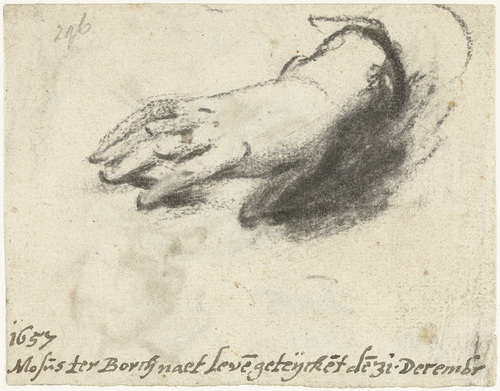 296
1657
Mosus ter Borch naet levē geteijckēt dē 31 Decembr